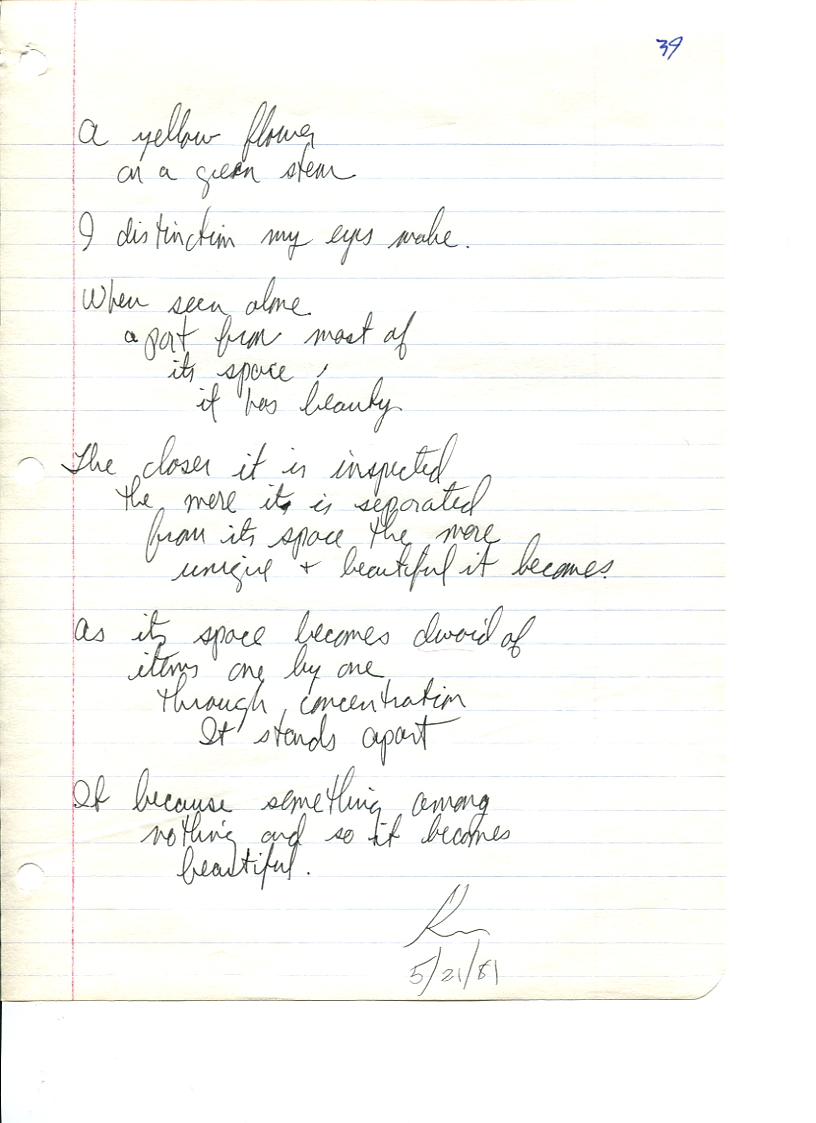 39
A yellow flower
on a green stem
I distinction my eyes make.
When seen alone
apart from most of
its space,
it has beauty.
The closer it is inspected
the more its is separated
from its space the more
unique + beautiful it becomes.
As its space becomes dvoid of
items one by one
through concentration
It stands apart
It because something among
nothing and so it becomes
beautiful.
5/21/81